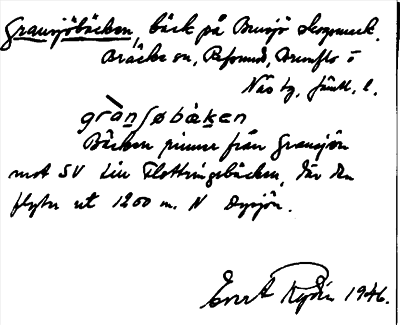 Gransjöbäcken, bäck på Bensjö skogsmark.
Bräcke sn, Refsund, Brunflo o
Näs tg, Jämtl. l.
gràn∫øbàken
Bäcken rinner från Gransjön
mot SV till Flottningsbäcken, där den
flyter ut 1200 m. N Dysjön.
Ernst Rydén 1946.